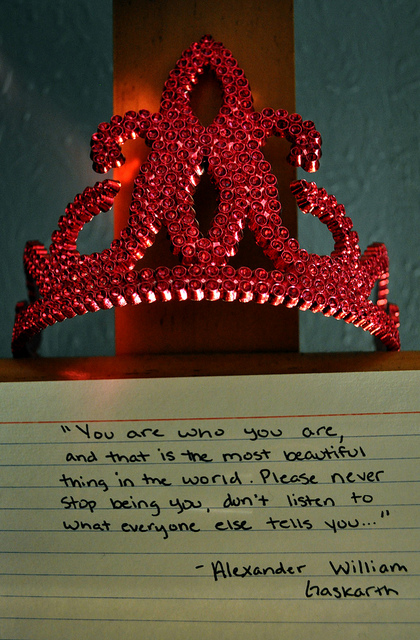 "You are who you are,
and that is the most beautiful
thing in the world. Please never
stop being you, don't listen to
what everyone else tells you..."
- Alexander William
Gaskarth